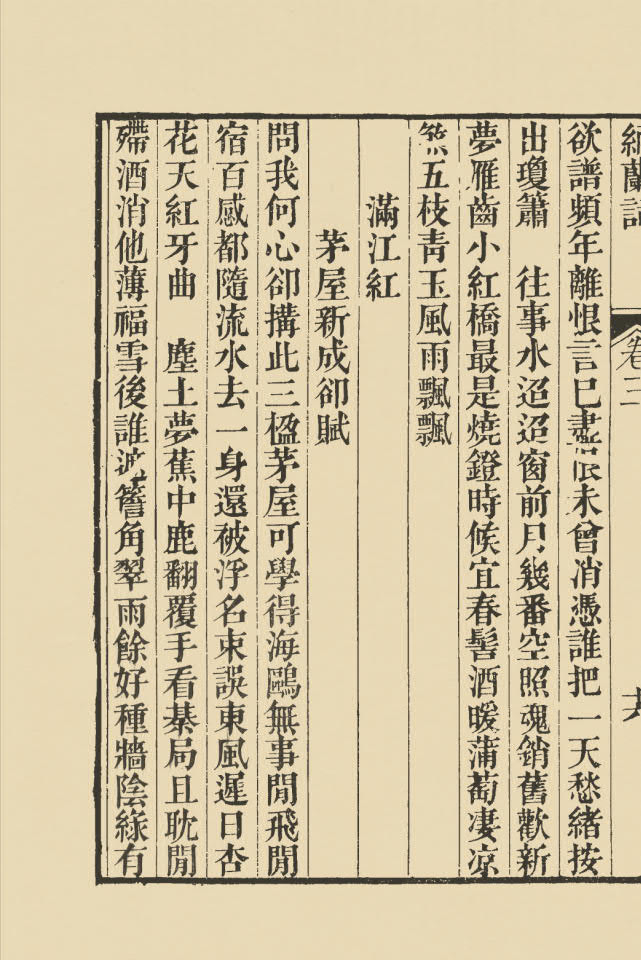 納蘭詞 卷三
欲譜頻年離恨言已盡恨未曾消憑誰把一天愁緒按
出瓊簫　往事水迢迢窗前月幾番空照魂銷舊歡新
夢雁齒小紅橋最是燒鐙時候宜春髻酒暖蒲萄凄凉
煞五枝青玉風雨飄飄
滿江紅
茅屋新成卻賦
問我何心卻搆此三楹茅屋可學得海鷗無事閒飛閒
宿百感都隨流水去一身還被浮名束誤東風遲日杏
花天紅牙曲　塵土夢蕉中鹿翻覆手看棊局且耽閒
殢酒消他薄福雪後誰遮簷角翠雨餘好種牆陰綠有